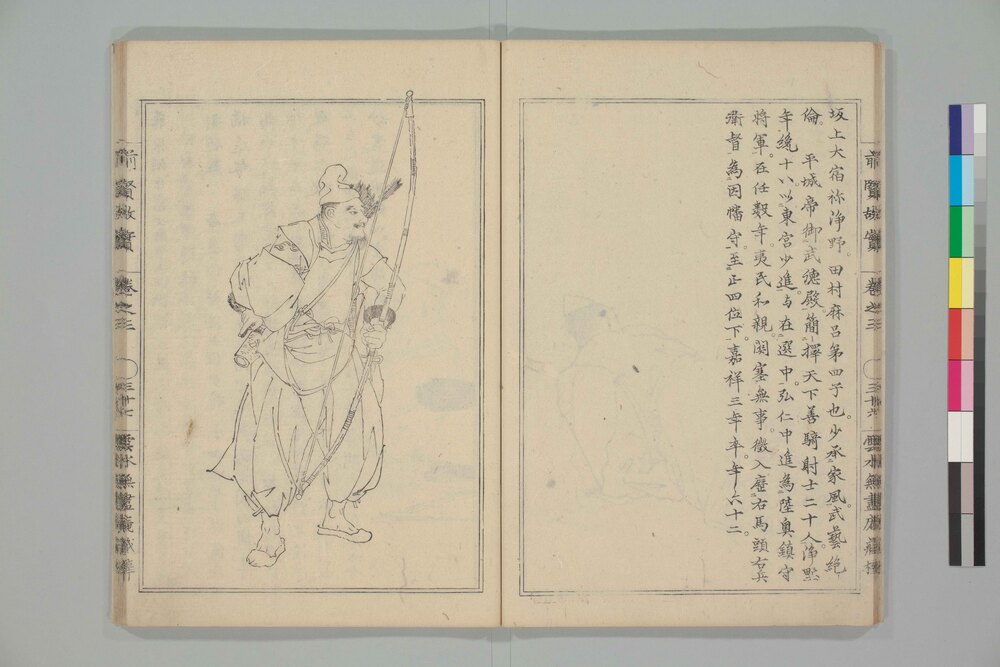 坂上大宿祢浄野。田村麻呂第四子也。少承家風。武藝絶
倫。平城帝御武徳殿。簡擇天下善騎射士二十人。浄野
年纔十八。以東宮少進与在選中。弘仁中進為陸奥鎮守
将軍。在任数年。夷民和親。関塞無事。徴入歴右馬頭右兵
衛督為因幡守。至正四位下。嘉祥三年卒。年六十二。
前賢故實
巻之三
三十六
前賢故實
巻之三
三十七